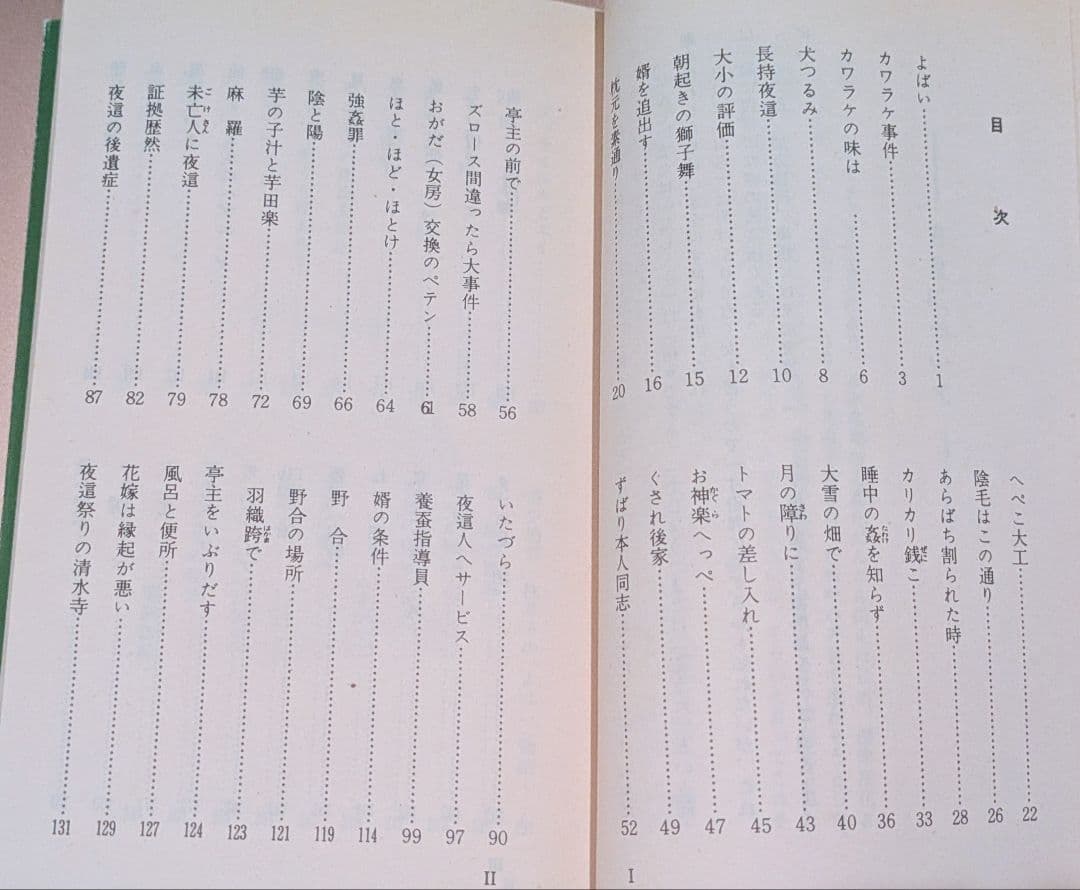 目次
よばい 1
カワラケ事件 3
カワラケの味は 6
犬つるみ 8
長持夜這 10
大小の評価 12
朝起きの獅子舞 15
婿を追出す 16
枕元を素通り 20
へぺこ大工 22
陰毛はこの通り 26
あらばち割られた時 28
カリカリ銭こ 33
睡中の姦を知らず 36
大雪の畑で 40
月の障りに 43
トマトの差し入れ 45
お神楽へっぺ 47
くされ後家 49
ずばり本人同志 52
I
亭主の前で 56
ズロース間違ったら大事件 58
おがだ（女房）交換のペテン 61
ほと・ほど・ほとけ 64
強姦罪 66
陰と陽 69
芋の子汁と芋田楽 72
麻羅 78
未亡人に夜這 79
証拠歴然 82
夜這の後遺症 87
いたづら 90
夜這人へサービス 97
養蚕指導員 99
婿の条件 114
野合 119
野合の場所 121
羽織袴で 123
亭主をいぶりだす 124
風呂と便所 127
花嫁は縁起が悪い 129
夜這祭りの清水寺 131
II